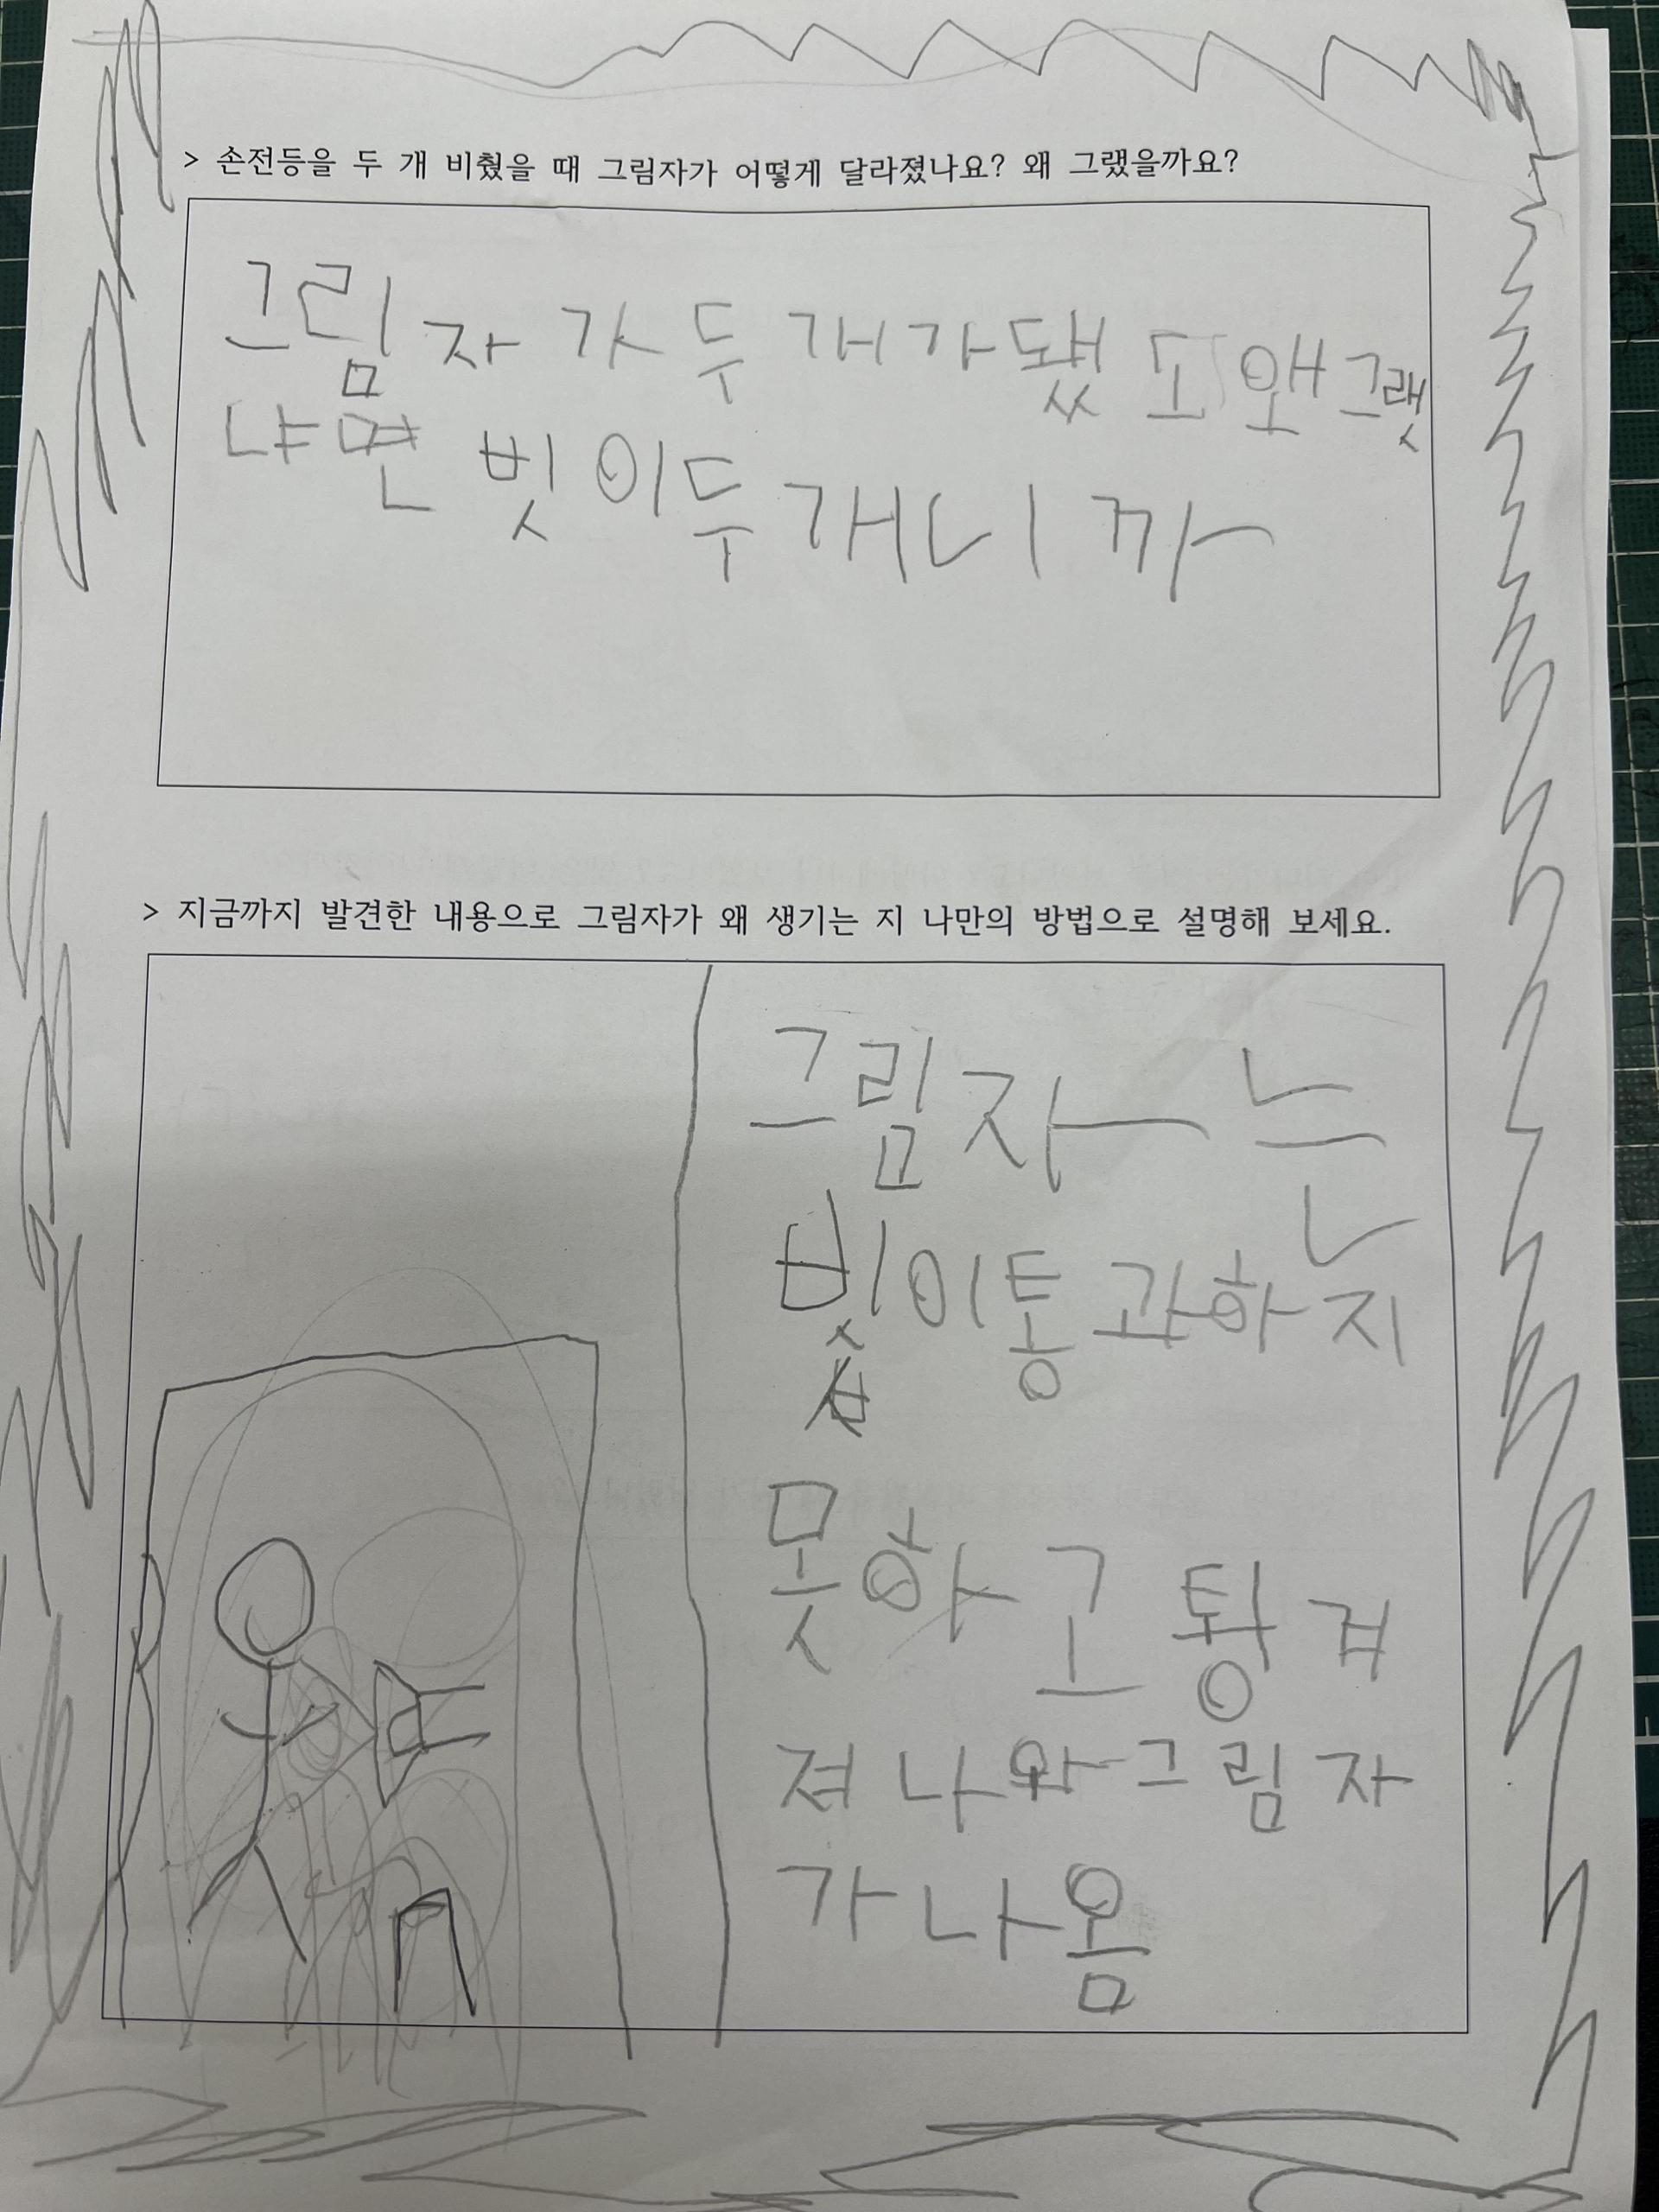 > 손전등을 두 개 비췄을 때 그림자가 어떻게 달라졌나요? 왜 그랬을까요?
그림자가 두개가됐 또 왜그랫
냐면 빗이두개니까
> 지금까지 발견한 내용으로 그림자가 왜 생기는 지 나만의 방법으로 설명해 보세요.
그림자는
빗이통과하지
못하고 팅겨
져나와그림자
가나옴